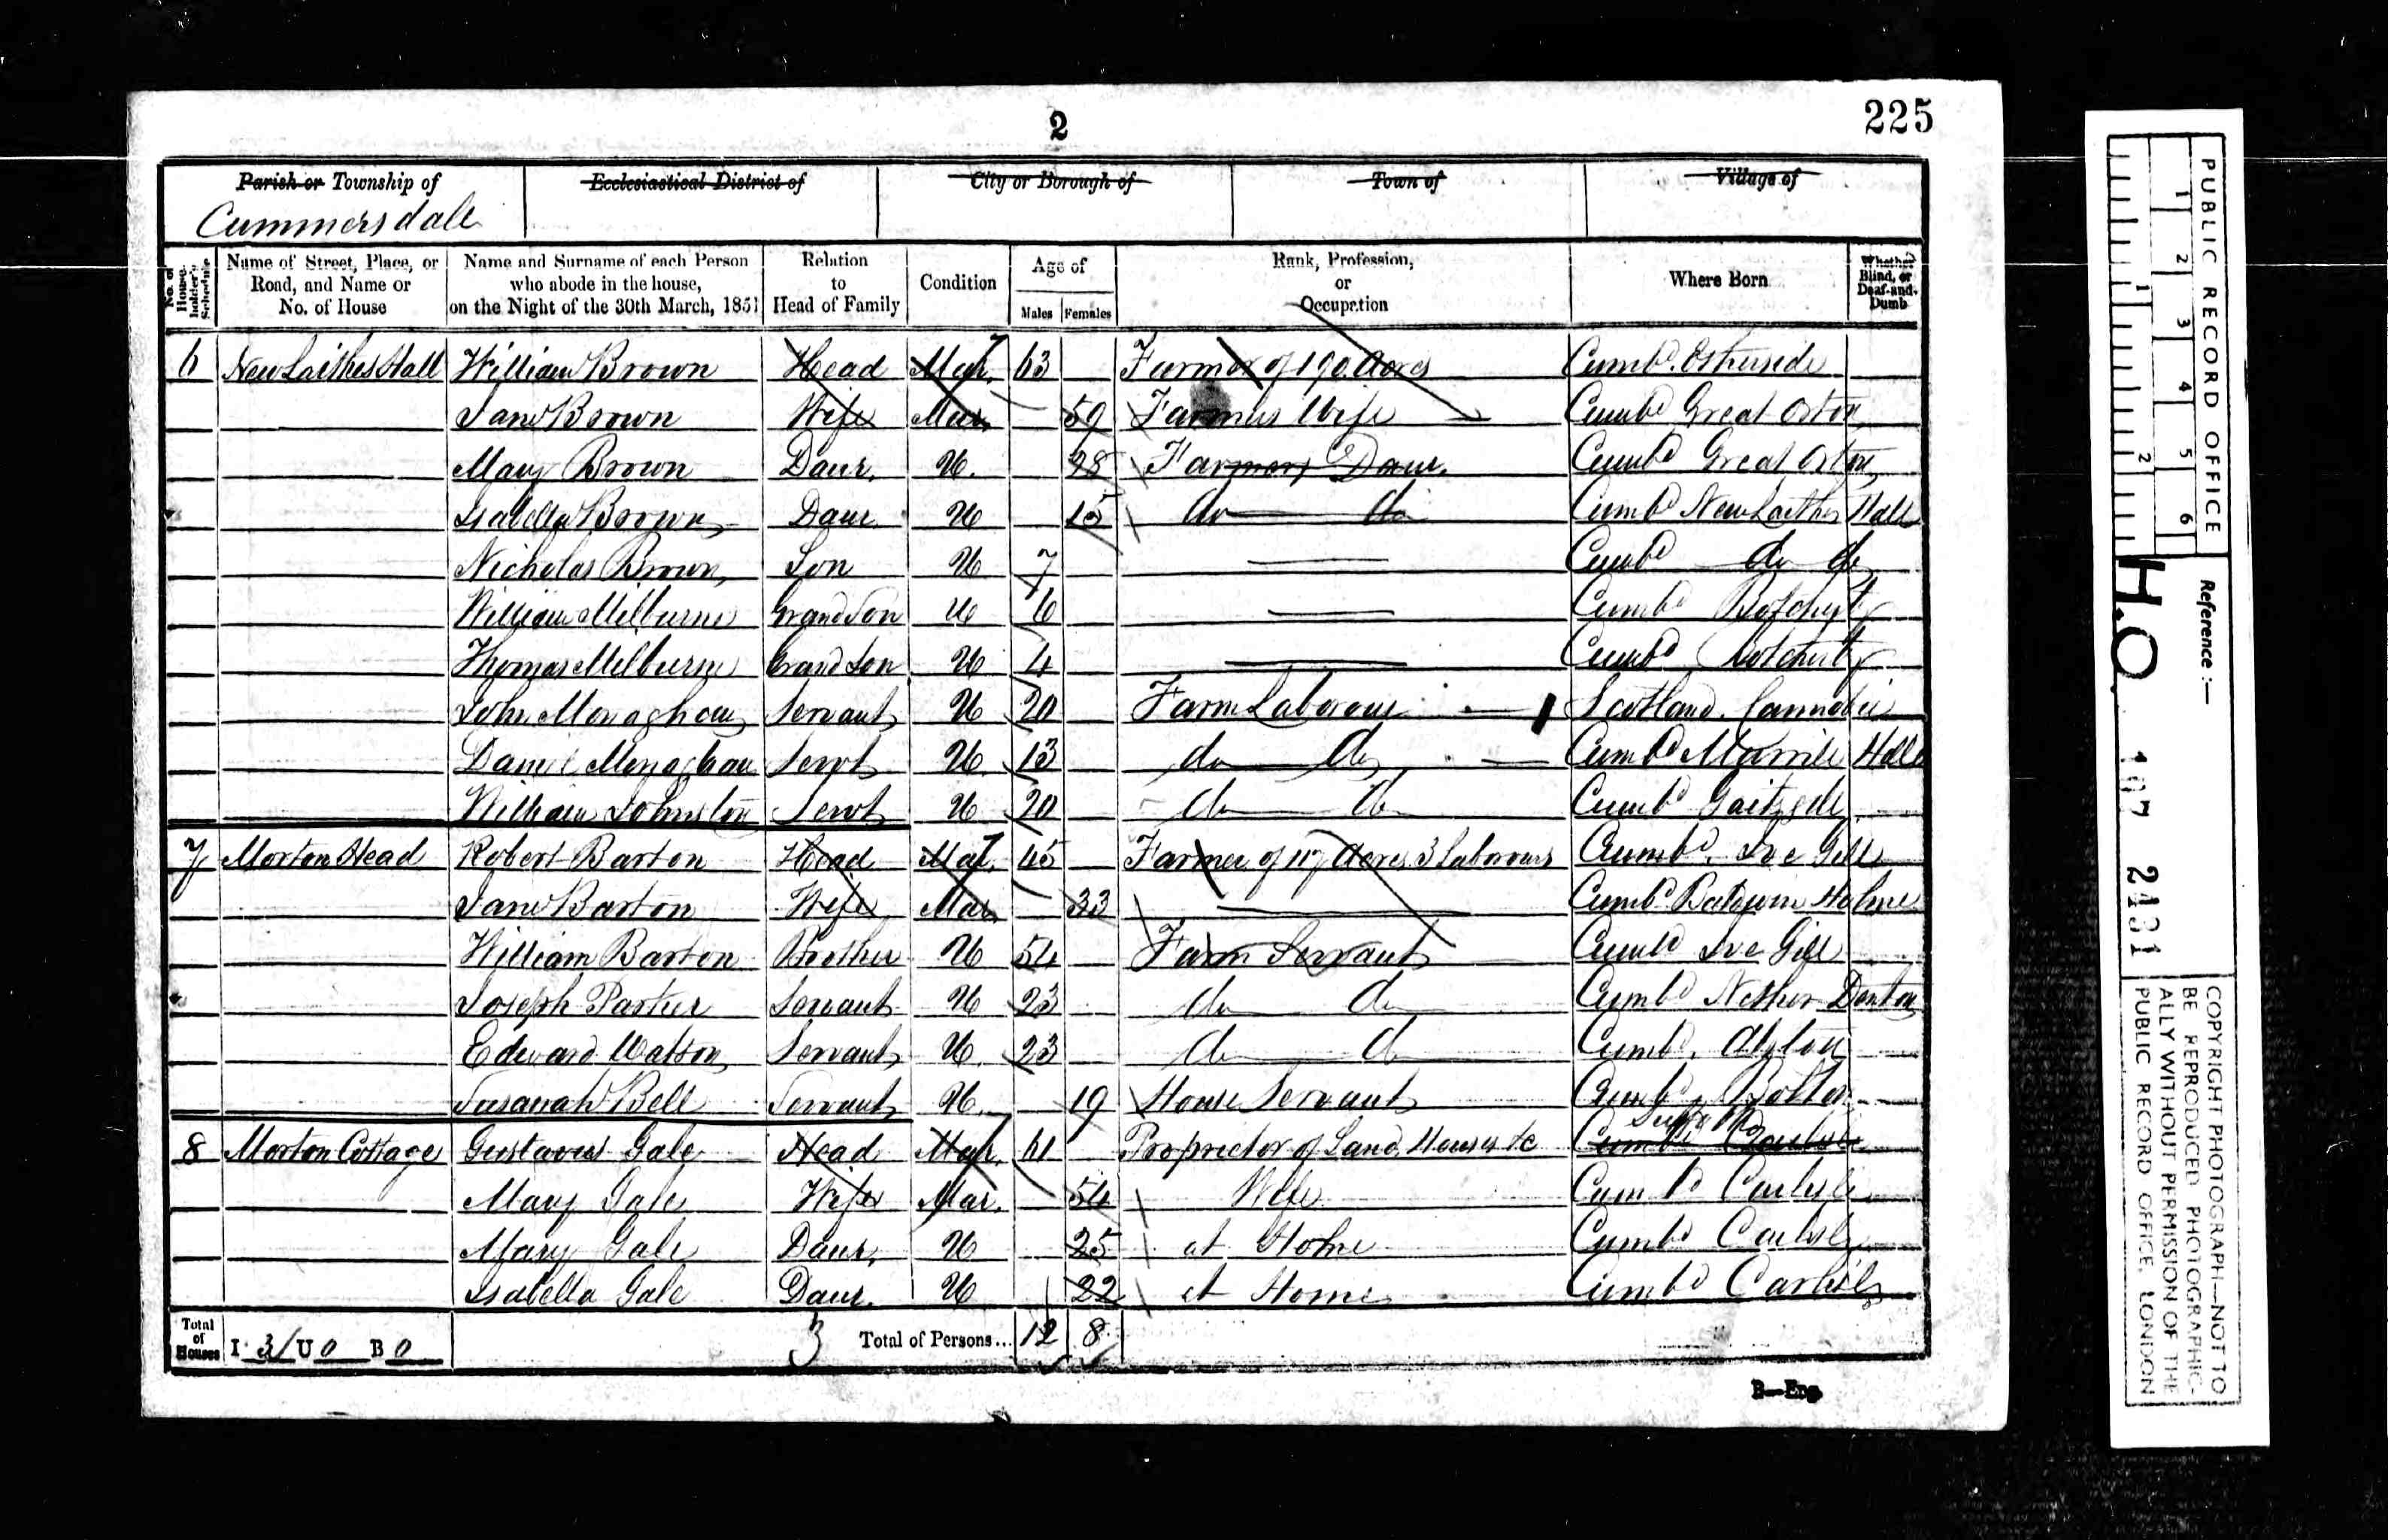 2
225
Parish or Township of
Cummersdale
Ecclesiastical District of
City or Borough of
Town of
Village of
No. of House-holder's Schedule
Name of Street, Place, or Road, and Name or No. of House
Name and Surname of each Person who abode in the house, on the Night of the 30th March, 1851
Relation to Head of Family
Condition
Age of
Males Females
Rank, Profession, or Occupation
Where Born
Whether Blind, or Deaf-and-Dumb
6 New Laithes Hall William Brown Head Mar. 63 Farmer of 190 Acres Cumbd.
Jane Brown Wife Mar. 59 Farmers Wife Cumbd Great Orton
Mary Brown Daur. U. 28 Farmers Daur. Cumbd Great Orton
Isabella Brown Daur U 15 do do Cumbd New Laithes Hall
Nicholas Brown Son U 7 Cumbd do do
William Milburne Grand Son U 6 Cumbd Botcherby
Thomas Milburne Grand Son U 4 Cumbd Botcherby
John Monaghan Servant U 20 Farm Laborour Scotland. Cannobie
Daniel Monaghan Servt U 13 do do Cumbd Hall
William Johnston Servt U 20 do do Cumbd
7 Morton Head Robert Barton Head Mar. 45 Farmer of 117 Acres 3 Laborours Cumbd. Ive Gill
Jane Barton Wife Mar. 33 Cumbd. Baldwin Holme
William Barton Brother U 54 Farm Servant Cumbd Ive Gill
Joseph Parker Servant U 23 do do Cumbd Nether Denton
Edward Watson Servant U. 23 do do Cumbd.
Susanah Bell Servant U. 19 House Servant Cumbd Bolton
8 Morton Cottage Gustavus Gale Head Mar. 61 Proprietor of Land, Houses &c Cumbd Carlisle Suffolk
Mary Gale Wife Mar. 54 Wife Cumbd Carlisle
Mary Gale Daur. U 25 at Home Cumbd Carlisle
Isabella Gale Daur. U 22 at Home Cumbd Carlisle
Total of Houses I 3 U 0 B 0
3 Total of Persons... 12 8
B—Eng.
PUBLIC RECORD OFFICE
1 2 3 4 5 6
1 2
Reference :—
H.O. 107 2431
COPYRIGHT PHOTOGRAPH—NOT TO
BE REPRODUCED PHOTOGRAPHIC-
ALLY WITHOUT PERMISSION OF THE
PUBLIC RECORD OFFICE, LONDON